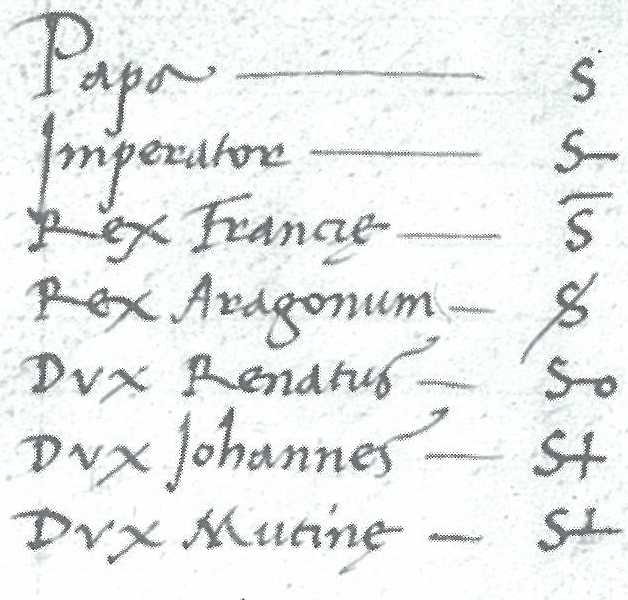 Papa — S
Imperator — S
Rex Francie — S
Rex Aragonum — S
Dvx Renatus — S
Dvx Johannes — S
Dvx Mutine — S